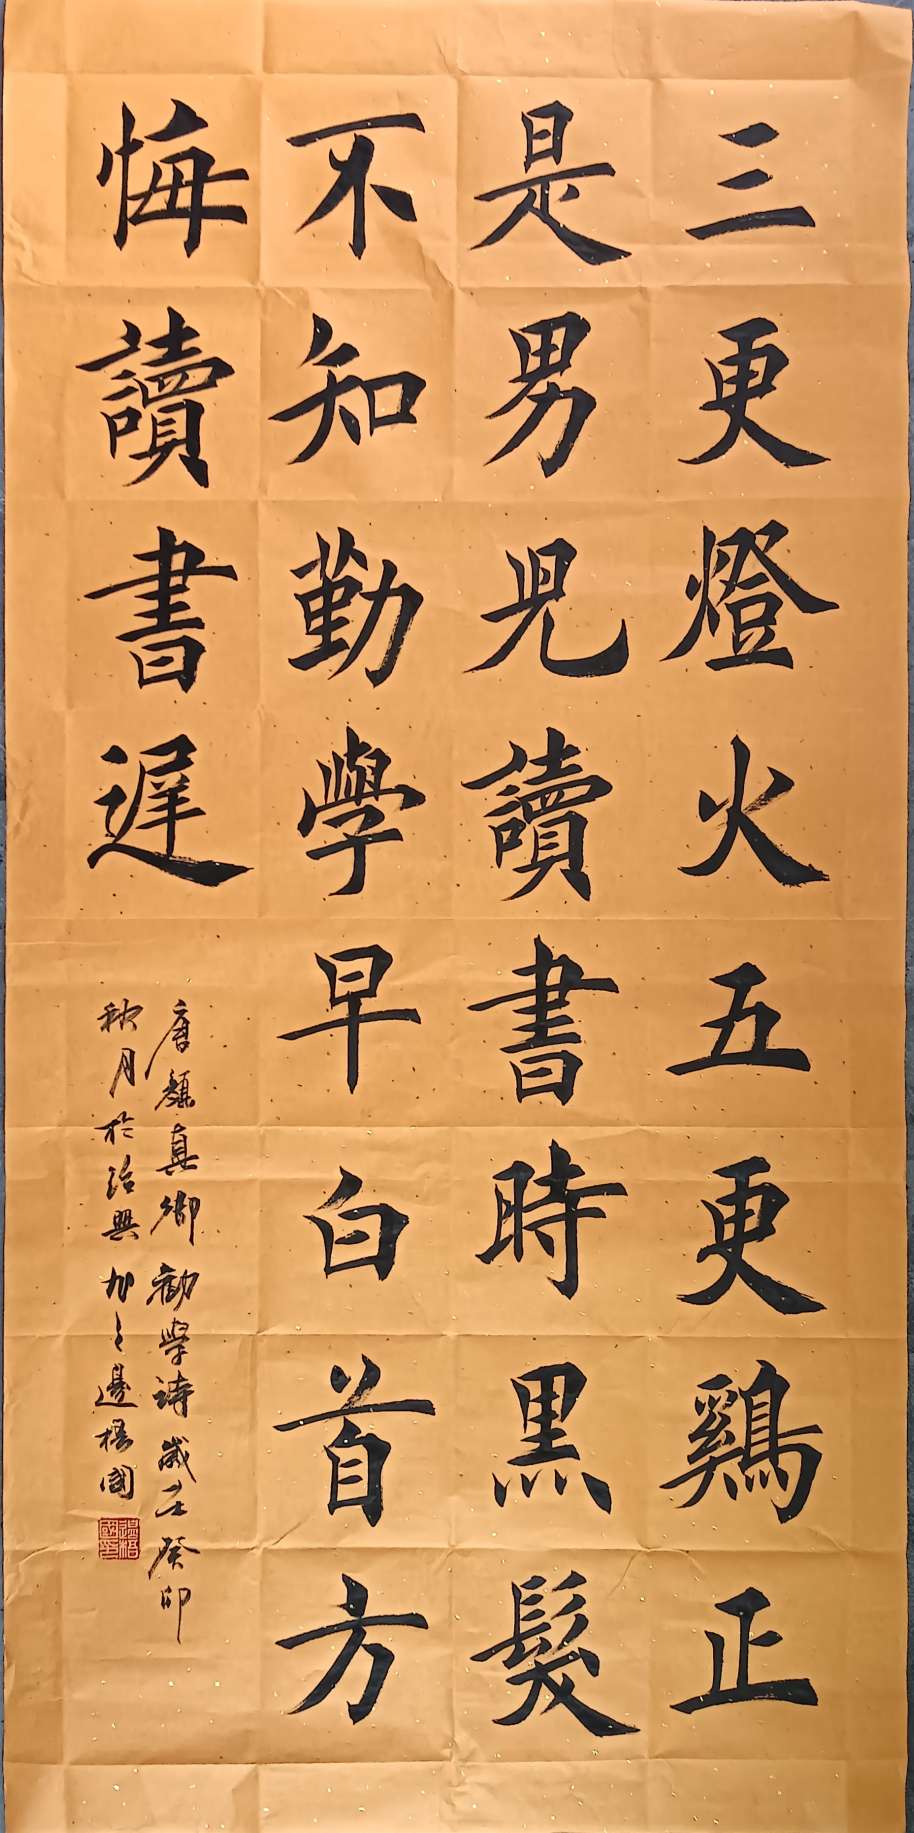 三更燈火五更鷄正
是男児讀書時黒髮
不知勤學早白首方
悔讀書遲
唐顏真卿勸學詩歲在癸卯
秋月於紹興 邊楊國